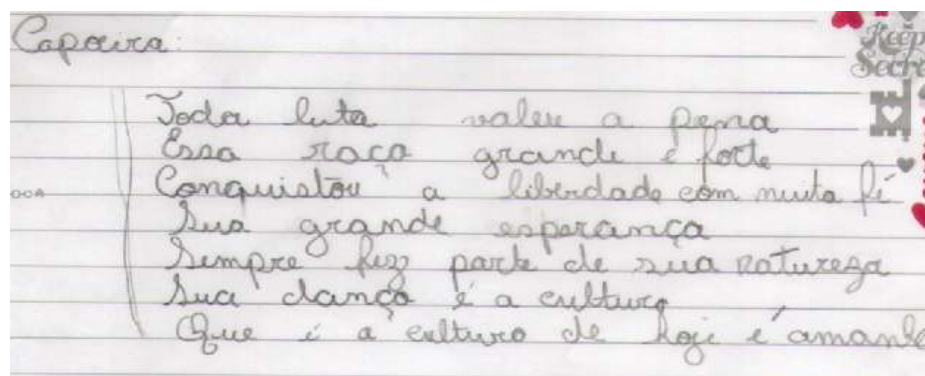 Capoeira:
Keep
Secre
Toda luta valeu a pena
Essa raça grande e forte
Conquistou a liberdade com muita fé
Sua grande esperança
Sempre fez parte de sua natureza
Sua dança é a cultura
Que é a cultura de hoje é amanhã